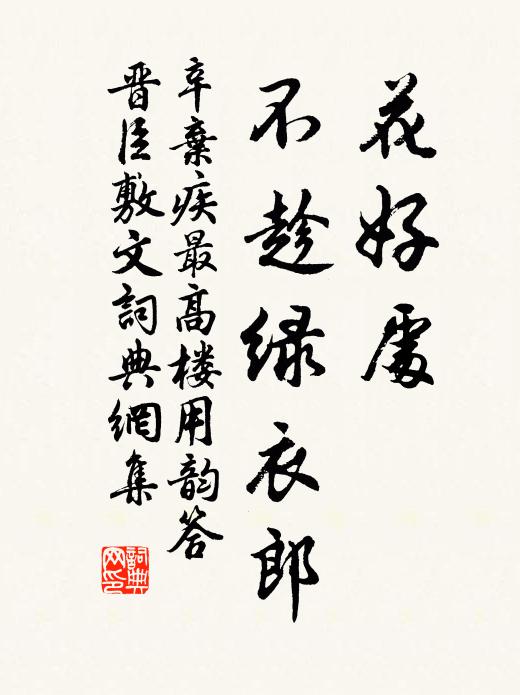 花好處
不趁緑衣郎
辛棄疾最高楼用韵答
晋臣敷文詞典網集
詞典网印